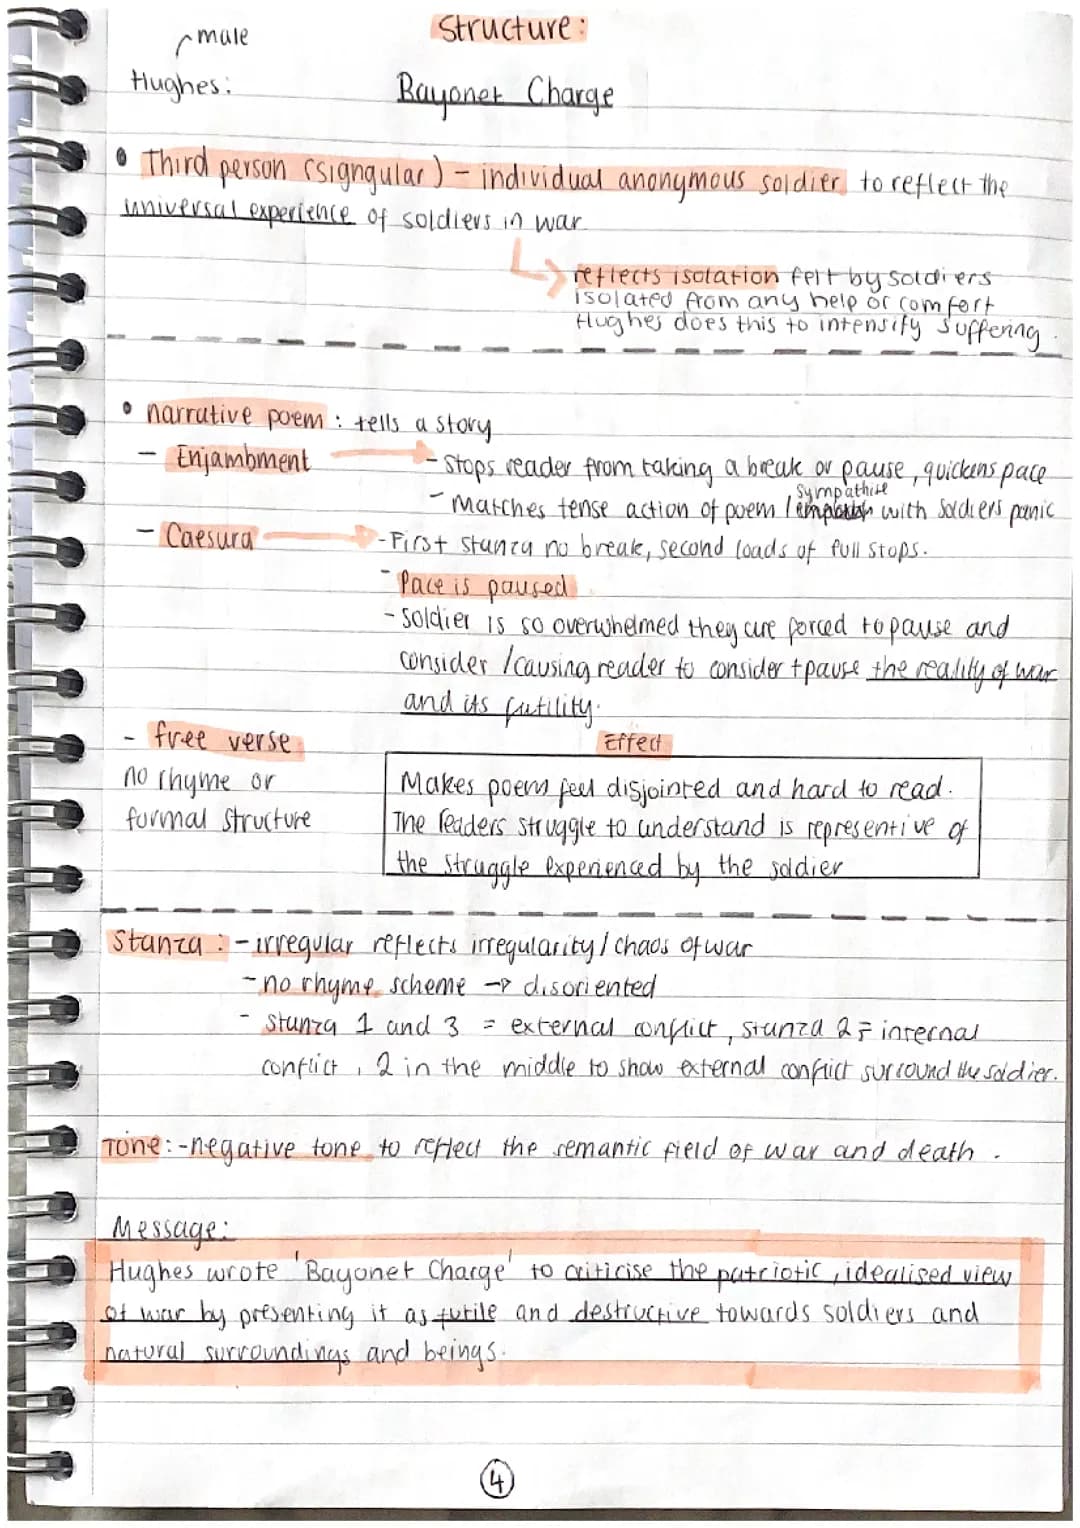 Structure:
male
Hughes:
Bayonet Charge
• Third person (signgular) - individual anonymous soldier to reflect the
universal experience of soldiers in war
reflects isolation felt by soldiers
isolated from any help or comfort
Hughes does this to intensify suffering.
• narrative poem: tells a story
- Enjambment
- Stops reader from taking a break or pause, quickens pace
sympathise
- Matches tense action of poem / with soldiers panic
- Caesura
- First stanza no break, second loads of full stops.
- Pace is paused
- soldier is so overwhelmed they are forced to pause and
consider / causing reader to consider + pause the reality of war
and its futility.
- free verse
no rhyme or
formal structure
Effect
Makes poem feel disjointed and hard to read.
The readers struggle to understand is representive of
the struggle experienced by the soldier
Stanza: - irregular reflects irregularity / chaos of war
- no rhyme scheme → disoriented
- stanza 1 and 3 = external conflict, stanza 2 = internal
conflict, 2 in the middle to show external conflict surround the soldier.
Tone: - negative tone to reflect the semantic field of war and death.
Message:
Hughes wrote 'Bayonet Charge' to criticise the patriotic, idealised view
of war by presenting it as futile and destructive towards soldiers and
natural surroundings and beings.
4